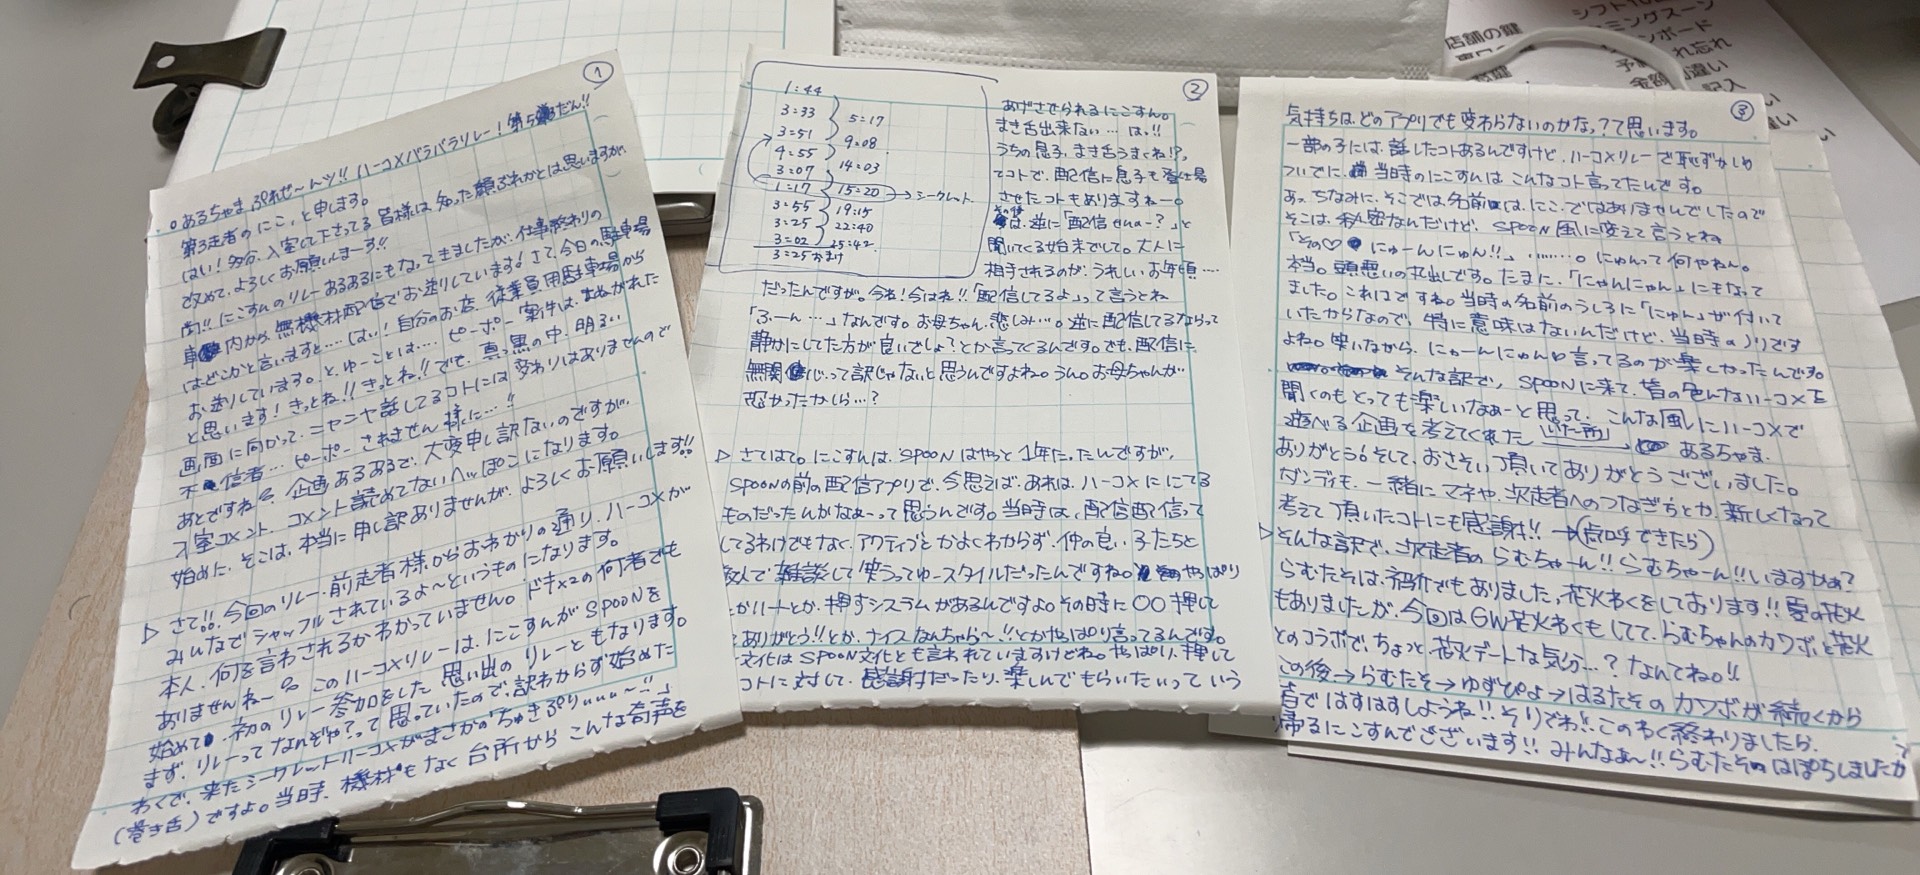 ①
○あるちゃま ぷれぜ〜んツ!! ハーコメバラバラリレー!第5だん!!
第3走者のにこ、と申します。
はい!多分、入室して下さってる皆様は知った顔ぶれかとは思いますが
改めて、よろしくお願いしまーす!!
にこすんのリレーあるあるにもなってきましたが、仕事終わりの
車内から無機材配信でお送りしています!さて、今日の駐車場
はどこかと言いますと……はい!自分のお店、従業員用駐車場から
お送りしています。とゆーことは…、ピーポー案件は、まぬがれた
と思います!きっとね!!きっとね!!でも、真っ黒の中、明るい
画面に向かって、ニヤニヤ話してるコトには変わりはありませんので
不信者…ピーポーされません様に…!!
あとですね、企画あるあるで、大変申し訳ないのですが、
入室コメント、コメント読めてないヘッぽこになります。
始めに、そこは、本当に申し訳ありませんが、よろしくお願いします!!
▷さて!!今回のリレー、前走者様からおわかりの通り、ハーコメが
みんなでシャッフルされているよ〜というものになります。
本人、何を言わされるかわかっていません。ドキ×2の何者でも
ありませんねー。このハーコメリレーは、にこすんがSPOONを
始めて、初のリレー参加をした思い出のリレーともなります。
まず、リレーってなんぞや?って思っていたので、訳わからず始めた
わくで、来たシークレットハーコメがまさかの「ちゅきぷりぃぃぃ〜!!」
(巻き舌)ですよ。当時、機材もなく台所からこんな奇声を
②
1:44
3:33
3:51
4:55
3:07
1:17
3:55
3:25
3:02
3:25 おまけ
5:17
9:08
14:03
15:20 → シークレット
19:15
22:40
25:42
あげさせられるにこすん。
まき舌出来ない…は!!
うちの息子、まき舌うまくね!?
てコトで、配信に息子も登場
させたコトもありますねー。
は、逆に「配信せぃぁー?」と
聞いてくる始末でして。大人に
相手されるのが、うれしいお年頃……
だったんですが。今ね!今はね!!「配信してるよ」って言うとね
「ふーん…」なんです。お母ちゃん、悲しみ…。逆に配信してるならって
静かにしてた方が良いでしょ?とか言ってくるんです。でも、配信に、
無関心って訳じゃないと思うんですよね。うん。お母ちゃんが
悪かったかしら…?
▷さてはて。にこすんは、SPOONはやっと1年たったんですが、
SPOONの前の配信アプリで、今思えば、あれは、ハーコメににてる
ものだったんかなぁーって思うんです。当時は、配信配信って
してるわけでもなく、アクティブとかよくわからず、仲の良い子たちと
数人で雑談して笑うってゆースタイルだったんですね。やっぱり
かハートとか、押すシステムがあるんですよ。その時に〇〇押して
ありがとう!!とか、ナイスなんちゃら〜!!とかやっぱり言ってるんです。
文化はSPOON文化とも言われていますけどね。やっぱり、押して
コトに対して、感謝だったり、楽しんでもらいたいっていう
③
気持ちは、どのアプリでも変わらないのかな。?て思います。
一部の子には、話したコトあるんですけど、ハーコメリレーで恥ずかしめ
ついでに、当時のにこすんは、こんなコト言ってたんです。
あっちなみに、そこでは名前は、にこ、ではありませんでしたので
そこは、秘密なんだけど、SPOON風に変えて言うとね
「その♡にゅーんにゅん!!」………。にゅんって何やねん。
本当。頭悪い丸出しです。たまに、「にゃんにゃん」にもなって
ました。これはですね。当時の名前のうしろに「にゅん」が付いて
いたからなので、特に意味はないんだけど、当時のノリです
よね。笑いながら、にゅーんにゅん♡言ってるのが楽しかったんです。
そんな訳で、SPOONに来て、皆の色んなハーコメを
聞くのもとっても楽しいなぁーと思って、こんな風にハーコメで
遊べる企画を考えてくれた「いた所」→あるちゃま、
ありがとう。そして、おさそい頂いてありがとうございました。
ダンディも、一緒にマネや、次走者へのつなぎ方とか、新しくなって
考えて頂いたコトにも感謝!! →(点呼できたら)
▷そんな訳で、次走者のらむちゃーん!!らむちゃーん!!いますかぁ?
らむたそは、初外でもありました、花火わくをしております!!夏の花火
もありましたが、今回はGW花火わくもしてて、らむちゃんのカワボと花火
とのコラボで、ちょっと、花火デートな気分…?なんてね。!!
この後→らむたそ→ゆずぴよ→はるたそのカワボが続くから
皆ではすはすしようね!!そりでわ!!このわく終わりましたら、
帰るにこすんでございます!!みんなぁー!!らむたそのはぽちしましたか?
店舗の鍵